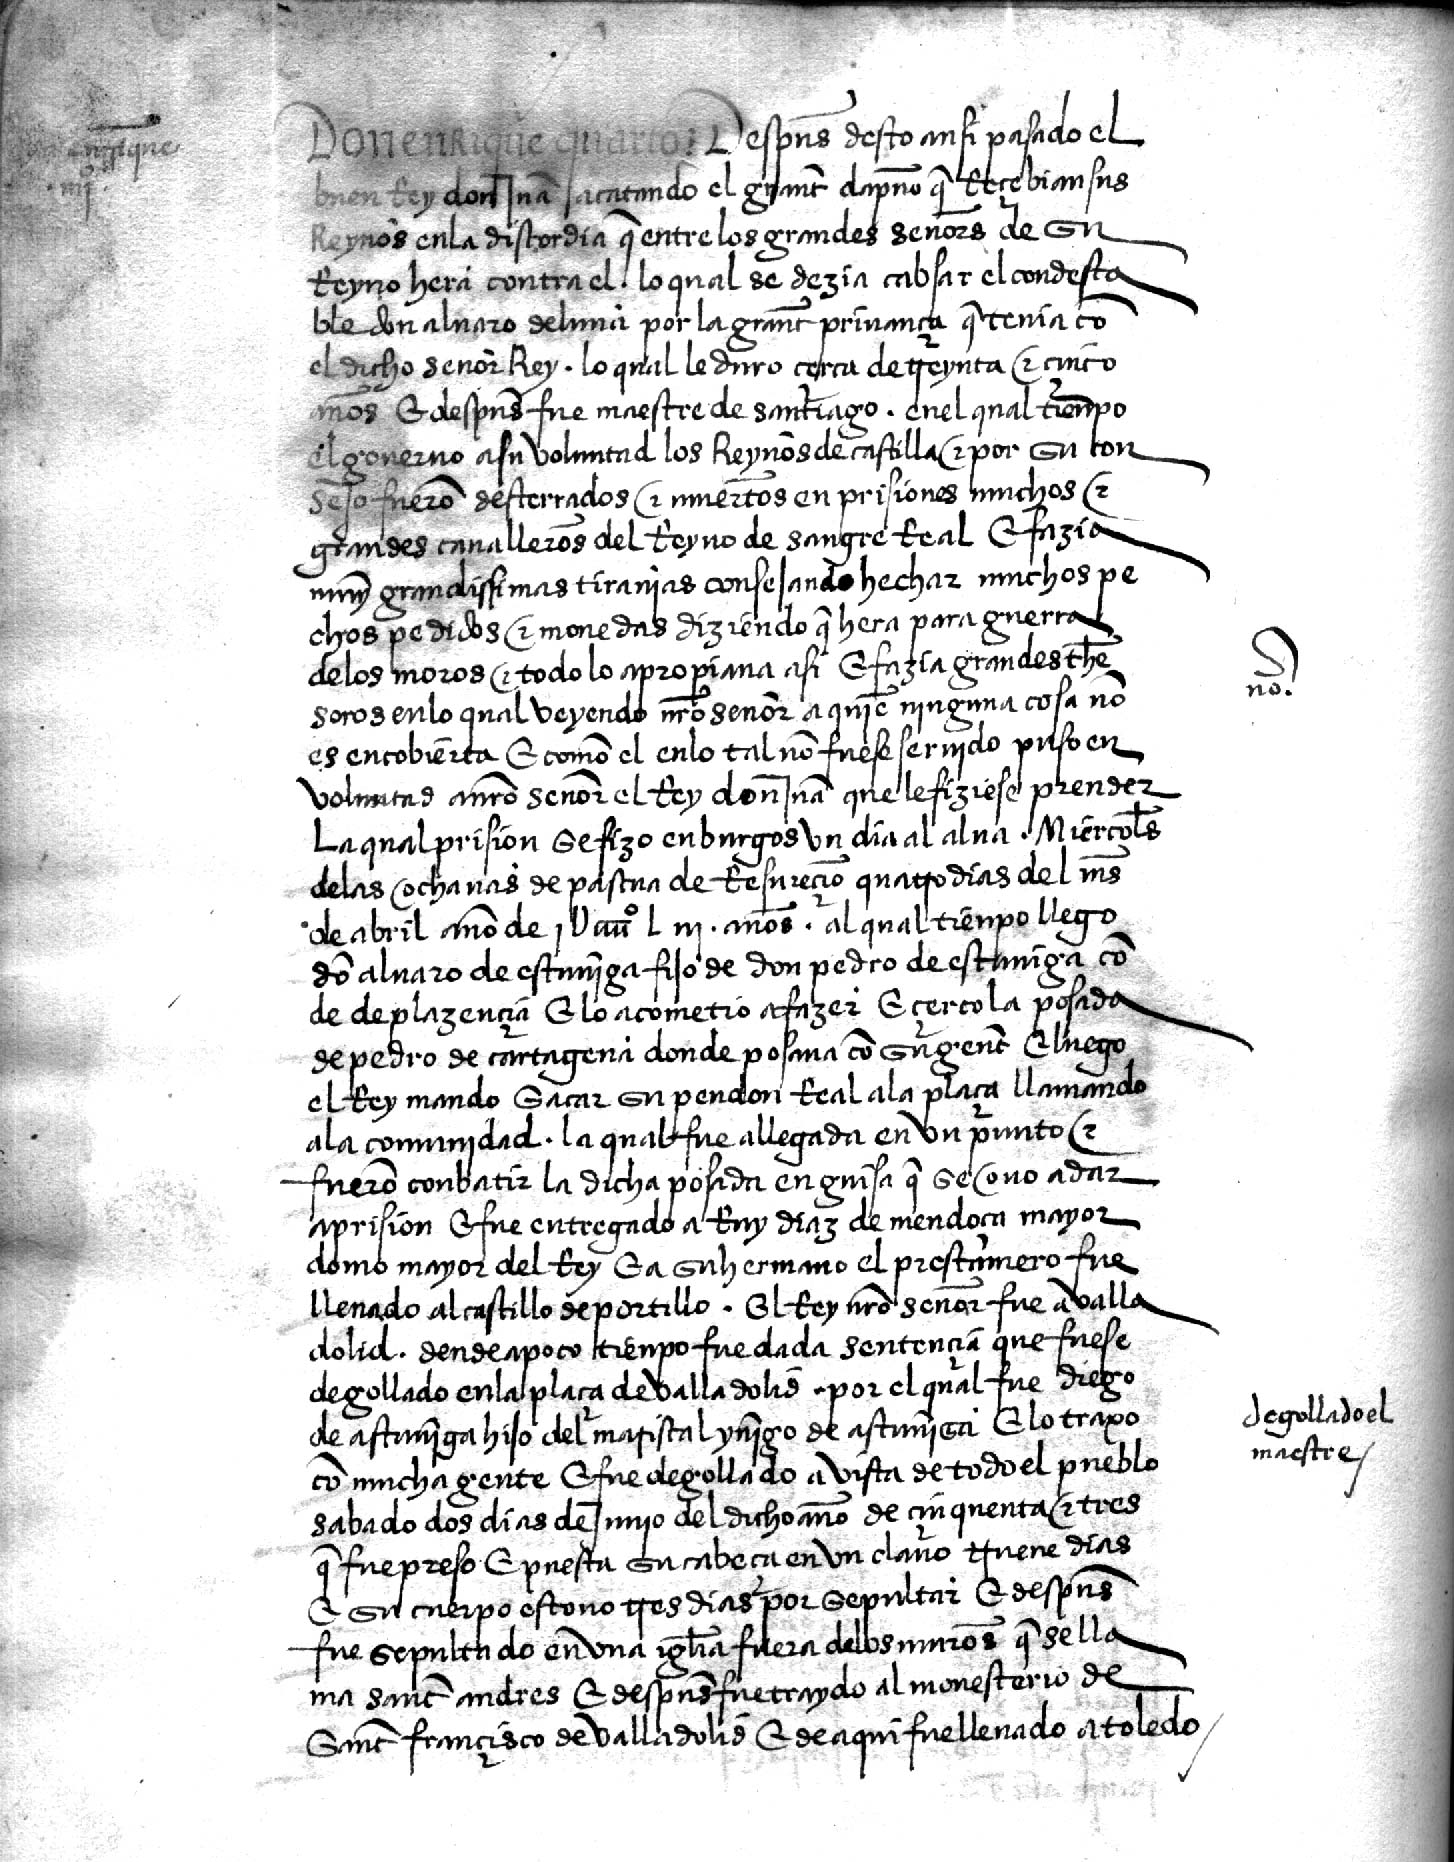 enrrique
.iiij.
Don enRique quarto: Despues desto ansi pasado el
buen Rey don Juā acatando el grant dapno q̄ Recebian sus
Reynos enla discordia q̄ entre los grandes señores de su
Reyno hera contra el . lo qual se dezia cabsar el condesta
ble don aluaro deluna por la grant priuança q̄ tenia cō
el dicho señor Rey . lo qual le duro cerca de treynta & cinco
años E despues fue maestre de santiago . enel qual tienpo
el gouerno asu voluntad los Reynos de castilla & por su con
sejo fuerō desterrados & muertos en prisiones muchos &
grandes caualleros del Reyno de sangre Real E fazia
muy grandissimas tiranias consejando hechar muchos pe
chos pedidos & monedas diziendo q̄ hera para guerra
delos moros & todo lo apropiaua asi E fazia grandes the
soros enlo qual veyendo nrō señor a quiē ninguna cosa nō
es encobierta E como el enlo tal nō fuese seruido puso en
voluntad a nrō señor el Rey don Juā que le fiziese prender
La qual prision se fizo en burgos vn dia al alua . Miercoles
delas ochauas de pascua de Resurecciō quatro dias del mes
de abril año de j U cccc° L iij . años . al qual tienpo llego
dō aluaro de estuniga fijo de don pedro de estuniga cō
de de plazencia E lo acometio afazer E cerco la posada
de pedro de cartagena donde posaua cō su gente E luego
el Rey mando sacar su pendon Real ala plaça llamando
ala comunidad . la qual fue allegada en vn punto &
fuerō conbatir la dicha posada en guisa q̄ se ouo adar
aprision E fue entregado a Ruy diaz de mendoça mayor
domo mayor del Rey E a su hermano el prestamero fue
lleuado al castillo de portillo . El Rey nrō señor fue a valla
dolid . dende apoco tienpo fue dada sentencia que fuese
degollado enla plaça de valladolid . por el qual fue diego
de astuniga hijo del mariscal yñigo de astuniga E lo traxo
cō mucha gente E fue degollado a vista de todo el pueblo
sabado dos dias de Junio del dicho año de cinquenta & tres
q̄ fue preso E puesta su cabeça en vn clauo nueue dias
E su cuerpo estouo tres dias por sepultar E despues
fue sepultado en vna iglia fuera delos muros q̄ se lla
ma sant andres E despues fue traydo al monesterio de
Sant francisco de valladolid E de aqui fue lleuado a toledo
no.
degollado el
maestre